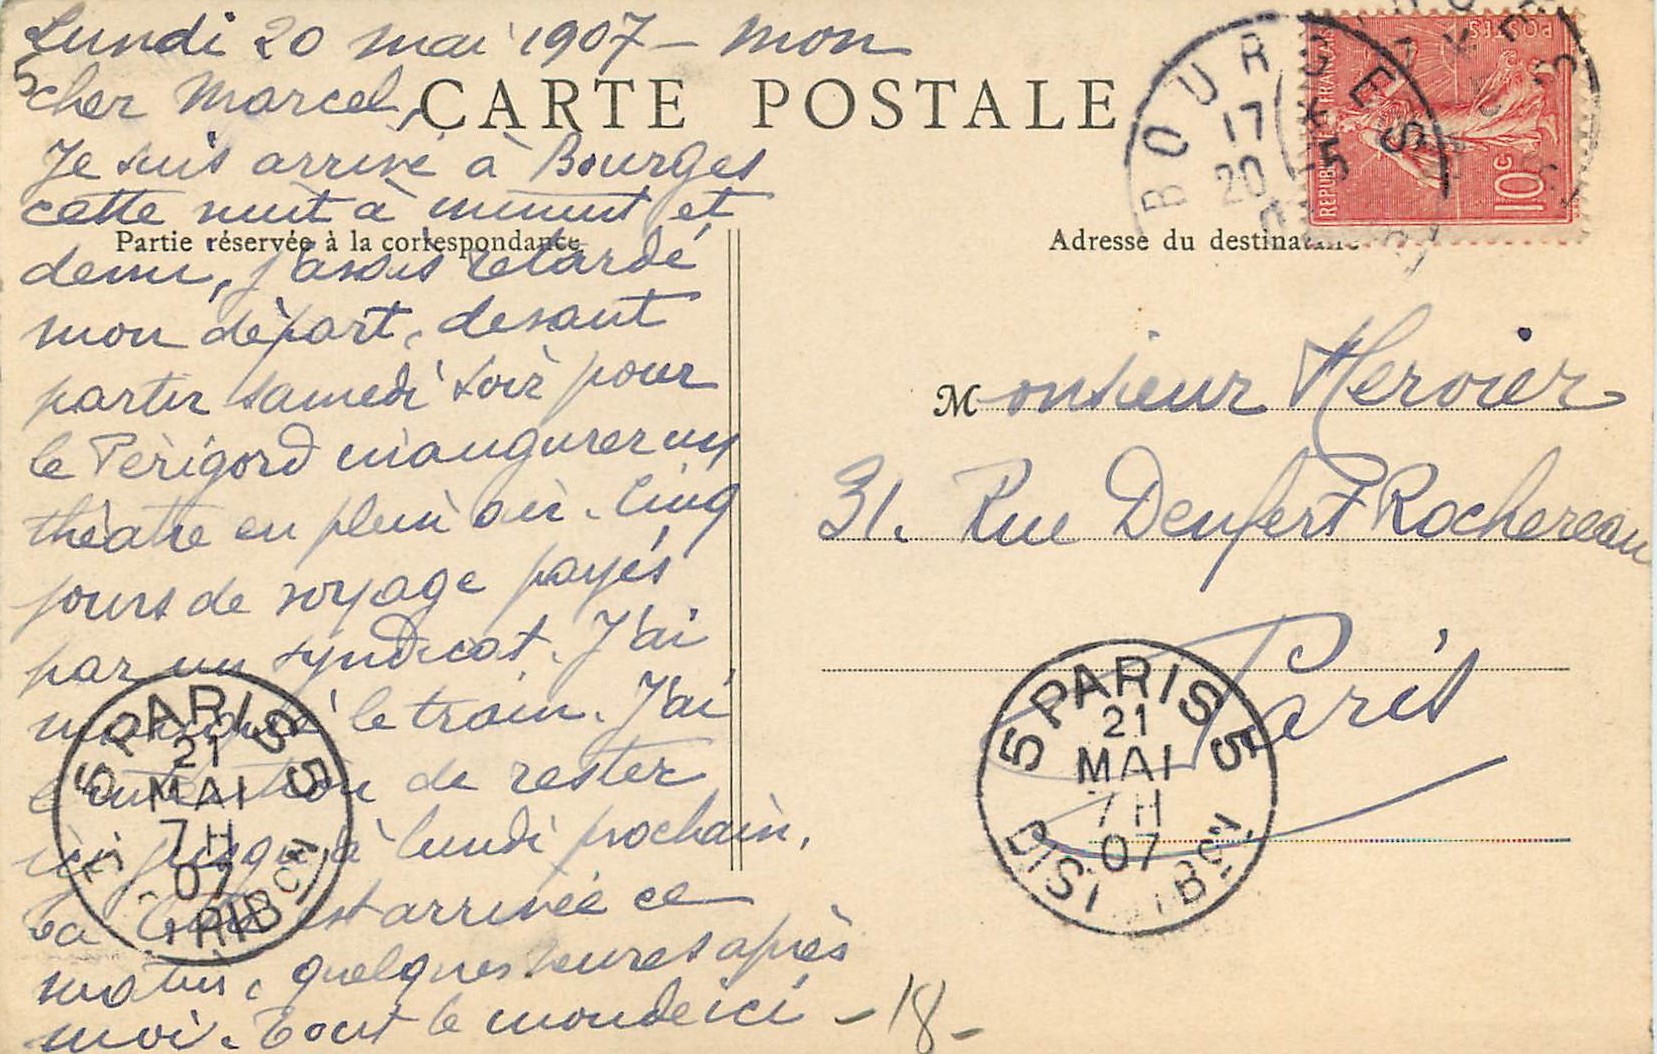 Lundi 20 mai 1907 - mon
cher Marcel,
CARTE POSTALE
Je suis arrivé à Bourges
cette nuit à minuit et
Partie réservée à la correspondance
demi, j'avais retardé
mon départ, devant
partir samedi soir pour
le Périgord inaugurer un
théatre en plein air. Cinq
jours de voyage payés
par un syndicat. J'ai
manqué le train. J'ai
l'intention de rester
ici jusqu'à lundi prochain.
Ta lettre est arrivée ce
matin, quelques heures après
moi. Tout le monde ici
- 18 -
5
BOURGES
17
20 -5
REPUBLIQUE FRANÇAISE
POSTES
10c
Adresse du destinataire
Monsieur Hervier
31. Rue Denfert Rochereau
Paris
5 PARIS 5
21
MAI
7H
07
DISTRIBON
5 PARIS 5
21
MAI
7H
07
DISTRIBON